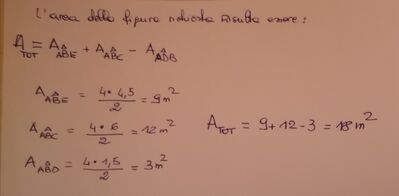 L'area della figura richiesta risulta essere:
A_TOT = A_AB̂E + A_AB̂C - A_AD̂B
A_AB̂E = 4•4,5/2 = 9m²
A_AB̂C = 4•6/2 = 12m²
A_TOT = 9+12-3 = 18m²
A_AB̂D = 4•1,5/2 = 3m²